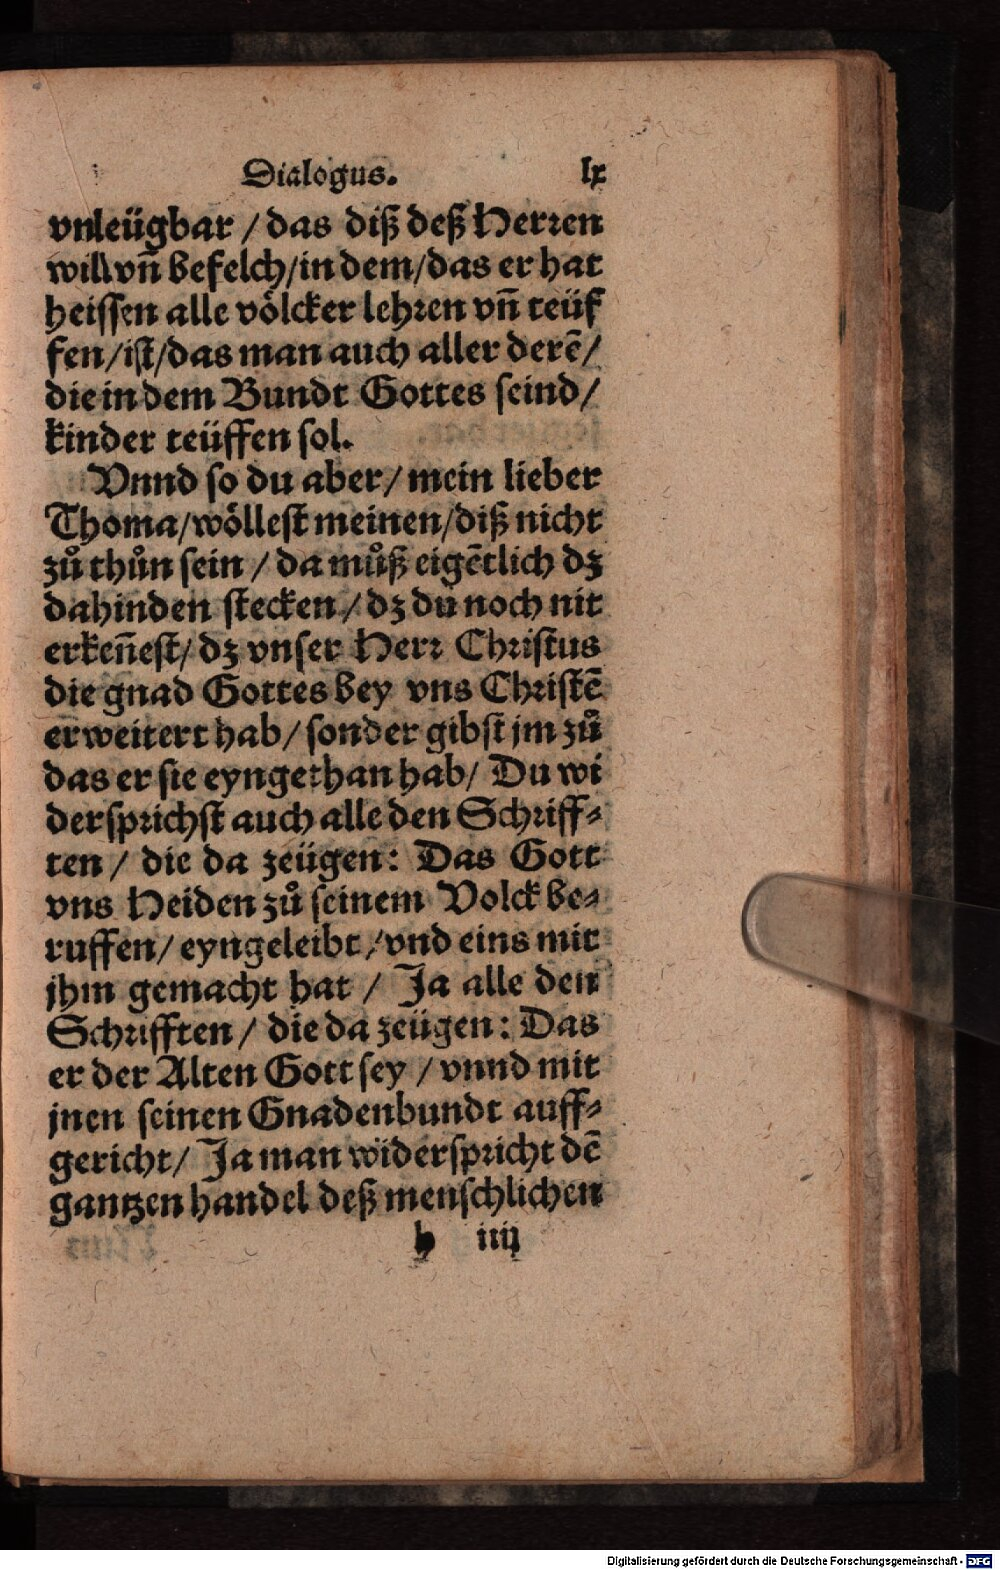 Dialogus. lx
vnleügbar / das diß deß Herꝛen
will vn̄ befelch / in dem / das er hat
heissen alle voͤlcker lehꝛen vn̄ teüf
fen / ist / das man auch aller derē /
die in dem Bundt Gottes seind /
kinder teüffen sol.
Vnnd so du aber / mein lieber
Thoma / woͤllest meinen / diß nicht
zuͦ thuͦn sein / da muͦß eigētlich dz
dahinden stecken / dz du noch nit
erkeñest / dz vnser Herꝛ Chꝛistus
die gnad Gottes bey vns Chꝛistē
erweitert hab / sonder gibst jm zuͦ
das er sie eyngethan hab / Du wi
derspꝛichst auch alle den Schꝛiff⸗
ten / die da zeügen: Das Gott
vns Heiden zuͦ seinem Volck be⸗
ruffen / eyngeleibt / vnd eins mit
jhm gemacht hat / Ja alle den
Schꝛifften / die da zeügen: Das
er der Alten Gott sey / vnnd mit
jnen seinen Gnadenbundt auff⸗
gericht / Ja man widerspꝛicht dē
gantzen handel deß menschlichen
h iiij
Digitalisierung gefördert durch die Deutsche Forschungsgemeinschaft - DFG